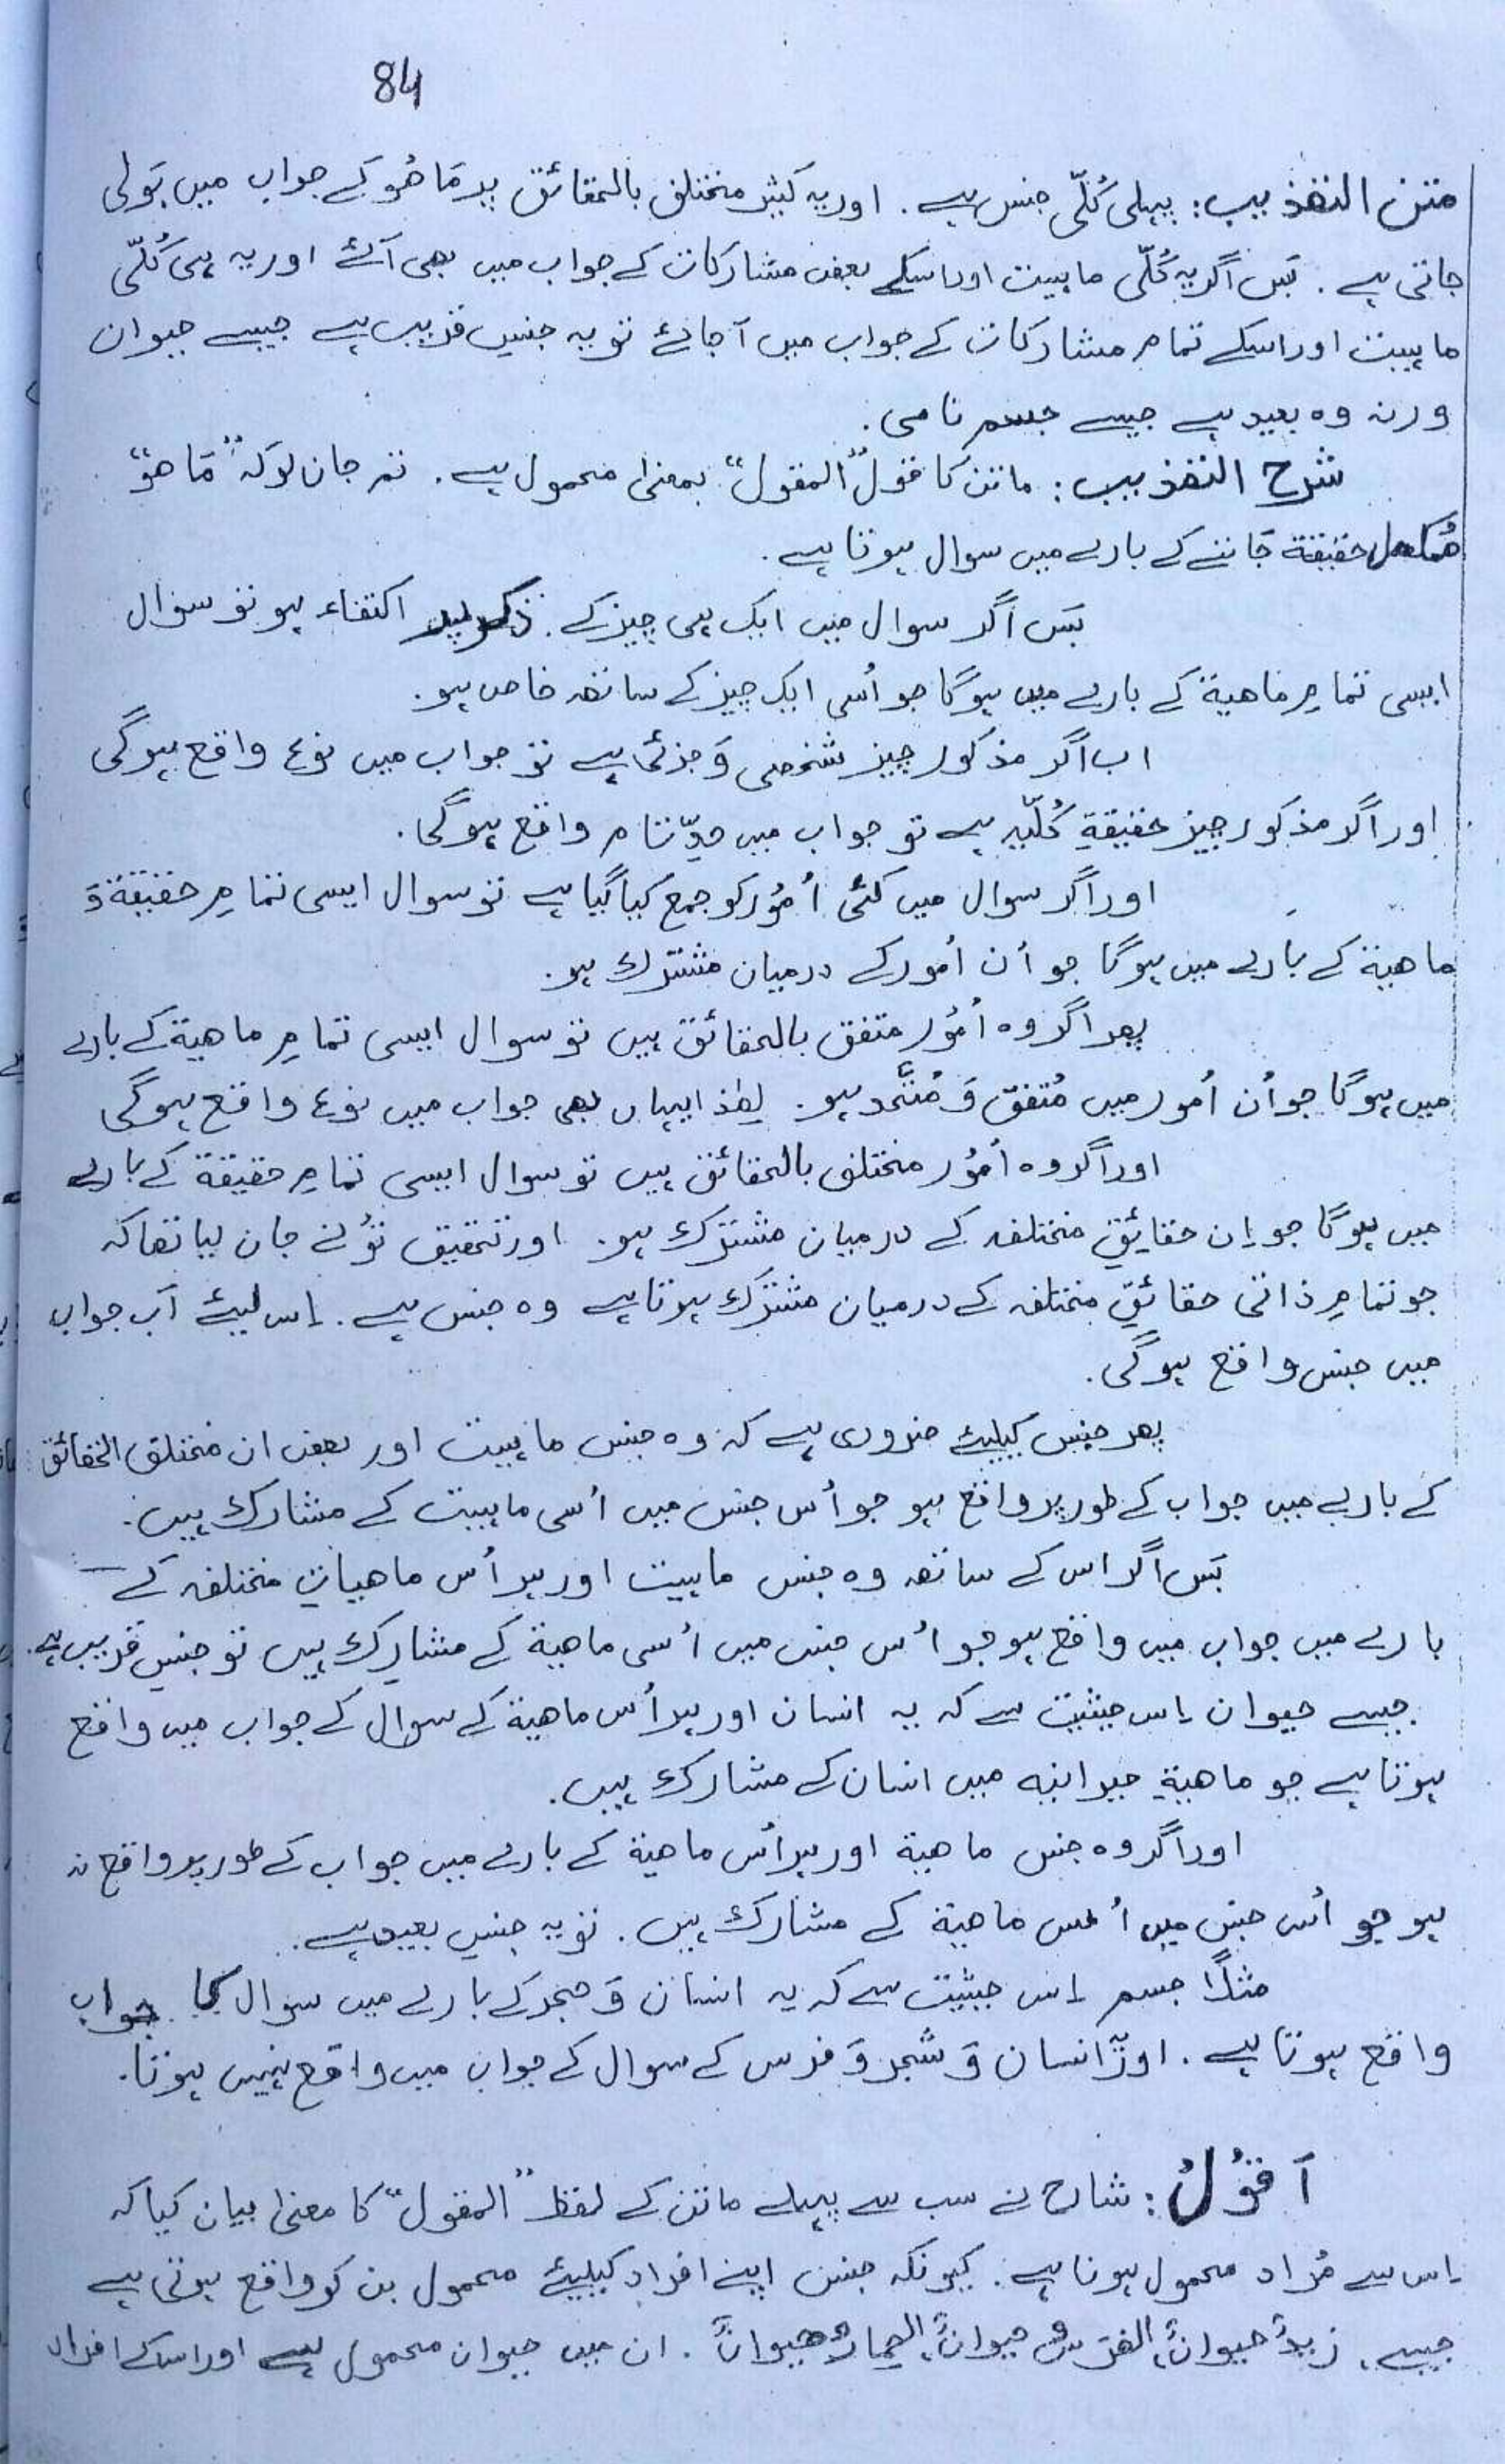 84
متن التهذيب: پہلی کُلّی جنس ہے. اور یہ کثیر مختلف بالحقائق پر مَا ھُوَ کے جواب میں بَولی
جاتی ہے. پَس اگر یہ کُلّی ماہیت اور اسکے بعض مشارکات کے جواب میں بھی آئے اور یہ ہی کُلّی
ماہیت اور اسکے تمام مشارکات کے جواب میں آجائے تو یہ جنسِ قریب ہے جیسے حیوان
ورنہ وہ بعید ہے جیسے جسم نامی.
شرح التهذيب: ماتن کا قول "المقول" بمعنیٰ محمول ہے. تم جان لو کہ "مَا ھوَ"
مُکمل حقیقة جَاننے کے بارے میں سوال ہوتا ہے.
پَس اگر سوال میں ایک ہی چیز کے ذکر پر اکتفاء ہو تو سوال
ایسی تمامِ ماھیة کے بارے میں ہوگا جو اُسی ایک چیز کے ساتھ خاص ہو.
اب اگر مذکور چیز شخصی وَ جزئی ہے تو جواب میں نوع واقع ہوگی
اور اگر مذکور چیز حقیقةِ کُلّیہ ہے تو جواب میں حدِّ تام واقع ہوگی.
اور اگر سوال میں کئی اُمُور کو جمع کیا گیا ہے تو سوال ایسی تمامِ حقیقة وَ
ماھیة کے بارے میں ہوگا جو اُن اُمور کے درمیان مشترك ہو.
پھر اگر وہ اُمُور متفق بالحقائق ہیں تو سوال ایسی تمامِ ماھیة کے بارے
میں ہوگا جو اُن اُمور میں مُتفق وَ مُتَّحد ہو. لھٰذا یہاں بھی جواب میں نوع واقع ہوگی
اور اگر وہ اُمُور مختلف بالحقائق ہیں تو سوال ایسی تمامِ حقیقة کے بارے
میں ہوگا جو اِن حقایقِ مختلفہ کے درمیان مشترك ہو. اور تحقیق تُو نے جان لیا تھا کہ
جو تمامِ ذاتی حقائقِ مختلفہ کے درمیان مشترك ہوتا ہے وہ جنس ہے. اِس لیئے اَب جواب
میں جنس واقع ہوگی.
پھر جنس کیلیئے ضروری ہے کہ وہ جنس ماہیت اور بعض ان مختلف الحقائق
کے بارے میں جواب کے طور پر واقع ہو جو اُس جنس میں اُسی ماہیت کے مشارك ہیں.
پَس اگر اس کے ساتھ وہ جنس ماہیت اور ہر اُس ماھیاتِ مختلفہ کے
بارے میں جواب میں واقع ہو جو اُس جنس میں اُسی ماھیة کے مشارِك ہیں تو جنسِ قریب ہے.
جیسے حیوان اِس حیثیت سے کہ یہ انسان اور ہر اُس ماھیة کے سوال کے جواب میں واقع
ہوتا ہے جو ماھیةِ حیوانیہ میں انسان کے مشارك ہیں.
اور اگر وہ جنس ماھیة اور ہر اُس ماھیة کے بارے میں جواب کے طور پر واقع نہ
ہو جو اُس جنس میں اُس ماھیة کے مشارك ہیں. تو یہ جنسِ بعید ہے.
مثلًا جسم اِس حیثیت سے کہ یہ انسان وَ حجر کے بارے میں سوال کا جواب
واقع ہوتا ہے. اور انسان وَ شجر وَ فرس کے سوال کے جواب میں واقع نہیں ہوتا.
اَقُوْلُ: شارح نے سب سے پہلے ماتن کے لفظ "المقول" کا معنیٰ بیان کیا کہ
اِس سے مُراد محمول ہونا ہے. کیونکہ جنس اپنے افراد کیلیئے محمول بن کر واقع ہوتی ہے
جیسے. زیدٌ حیوانٌ، الفرَسُ حیوانٌ، الحمارُ حیوانٌ. ان میں حیوان محمول ہے اور اسکے افراد